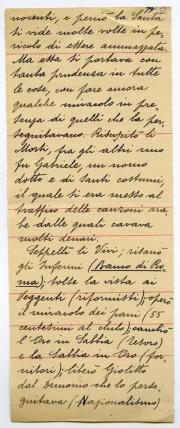 nocenti, e perciò la Santa
si vide molte volte in pe-
ricolo di essere ammazzata.
Ma essa si portava con
tanta prudenza in tutte
le cose, con fare ancora
qualche miracolo in pre-
senza di quelli che la per-
seguitavano. Risuscitò li
Morti, fra gli altri uno
fu Gabriele, un uomo
dotto e di santi costumi,
il quale si era messo al
traffico delle canzoni ara-
be dalle quali cavava
molti denari.
Seppellì li Vivi; risanò
gli Infermi (Banco di Ro-
ma); tolse la vista ai
Veggenti (riformisti); operò
il miracolo dei pani (55
centesimi al chilo); cambiò
l'Oro in Sabbia (Tesoro)
e la Sabbia in Oro (for-
nitori); liberò Giolitti
dal Demonio che lo perse-
guitava (Nazionalismo)